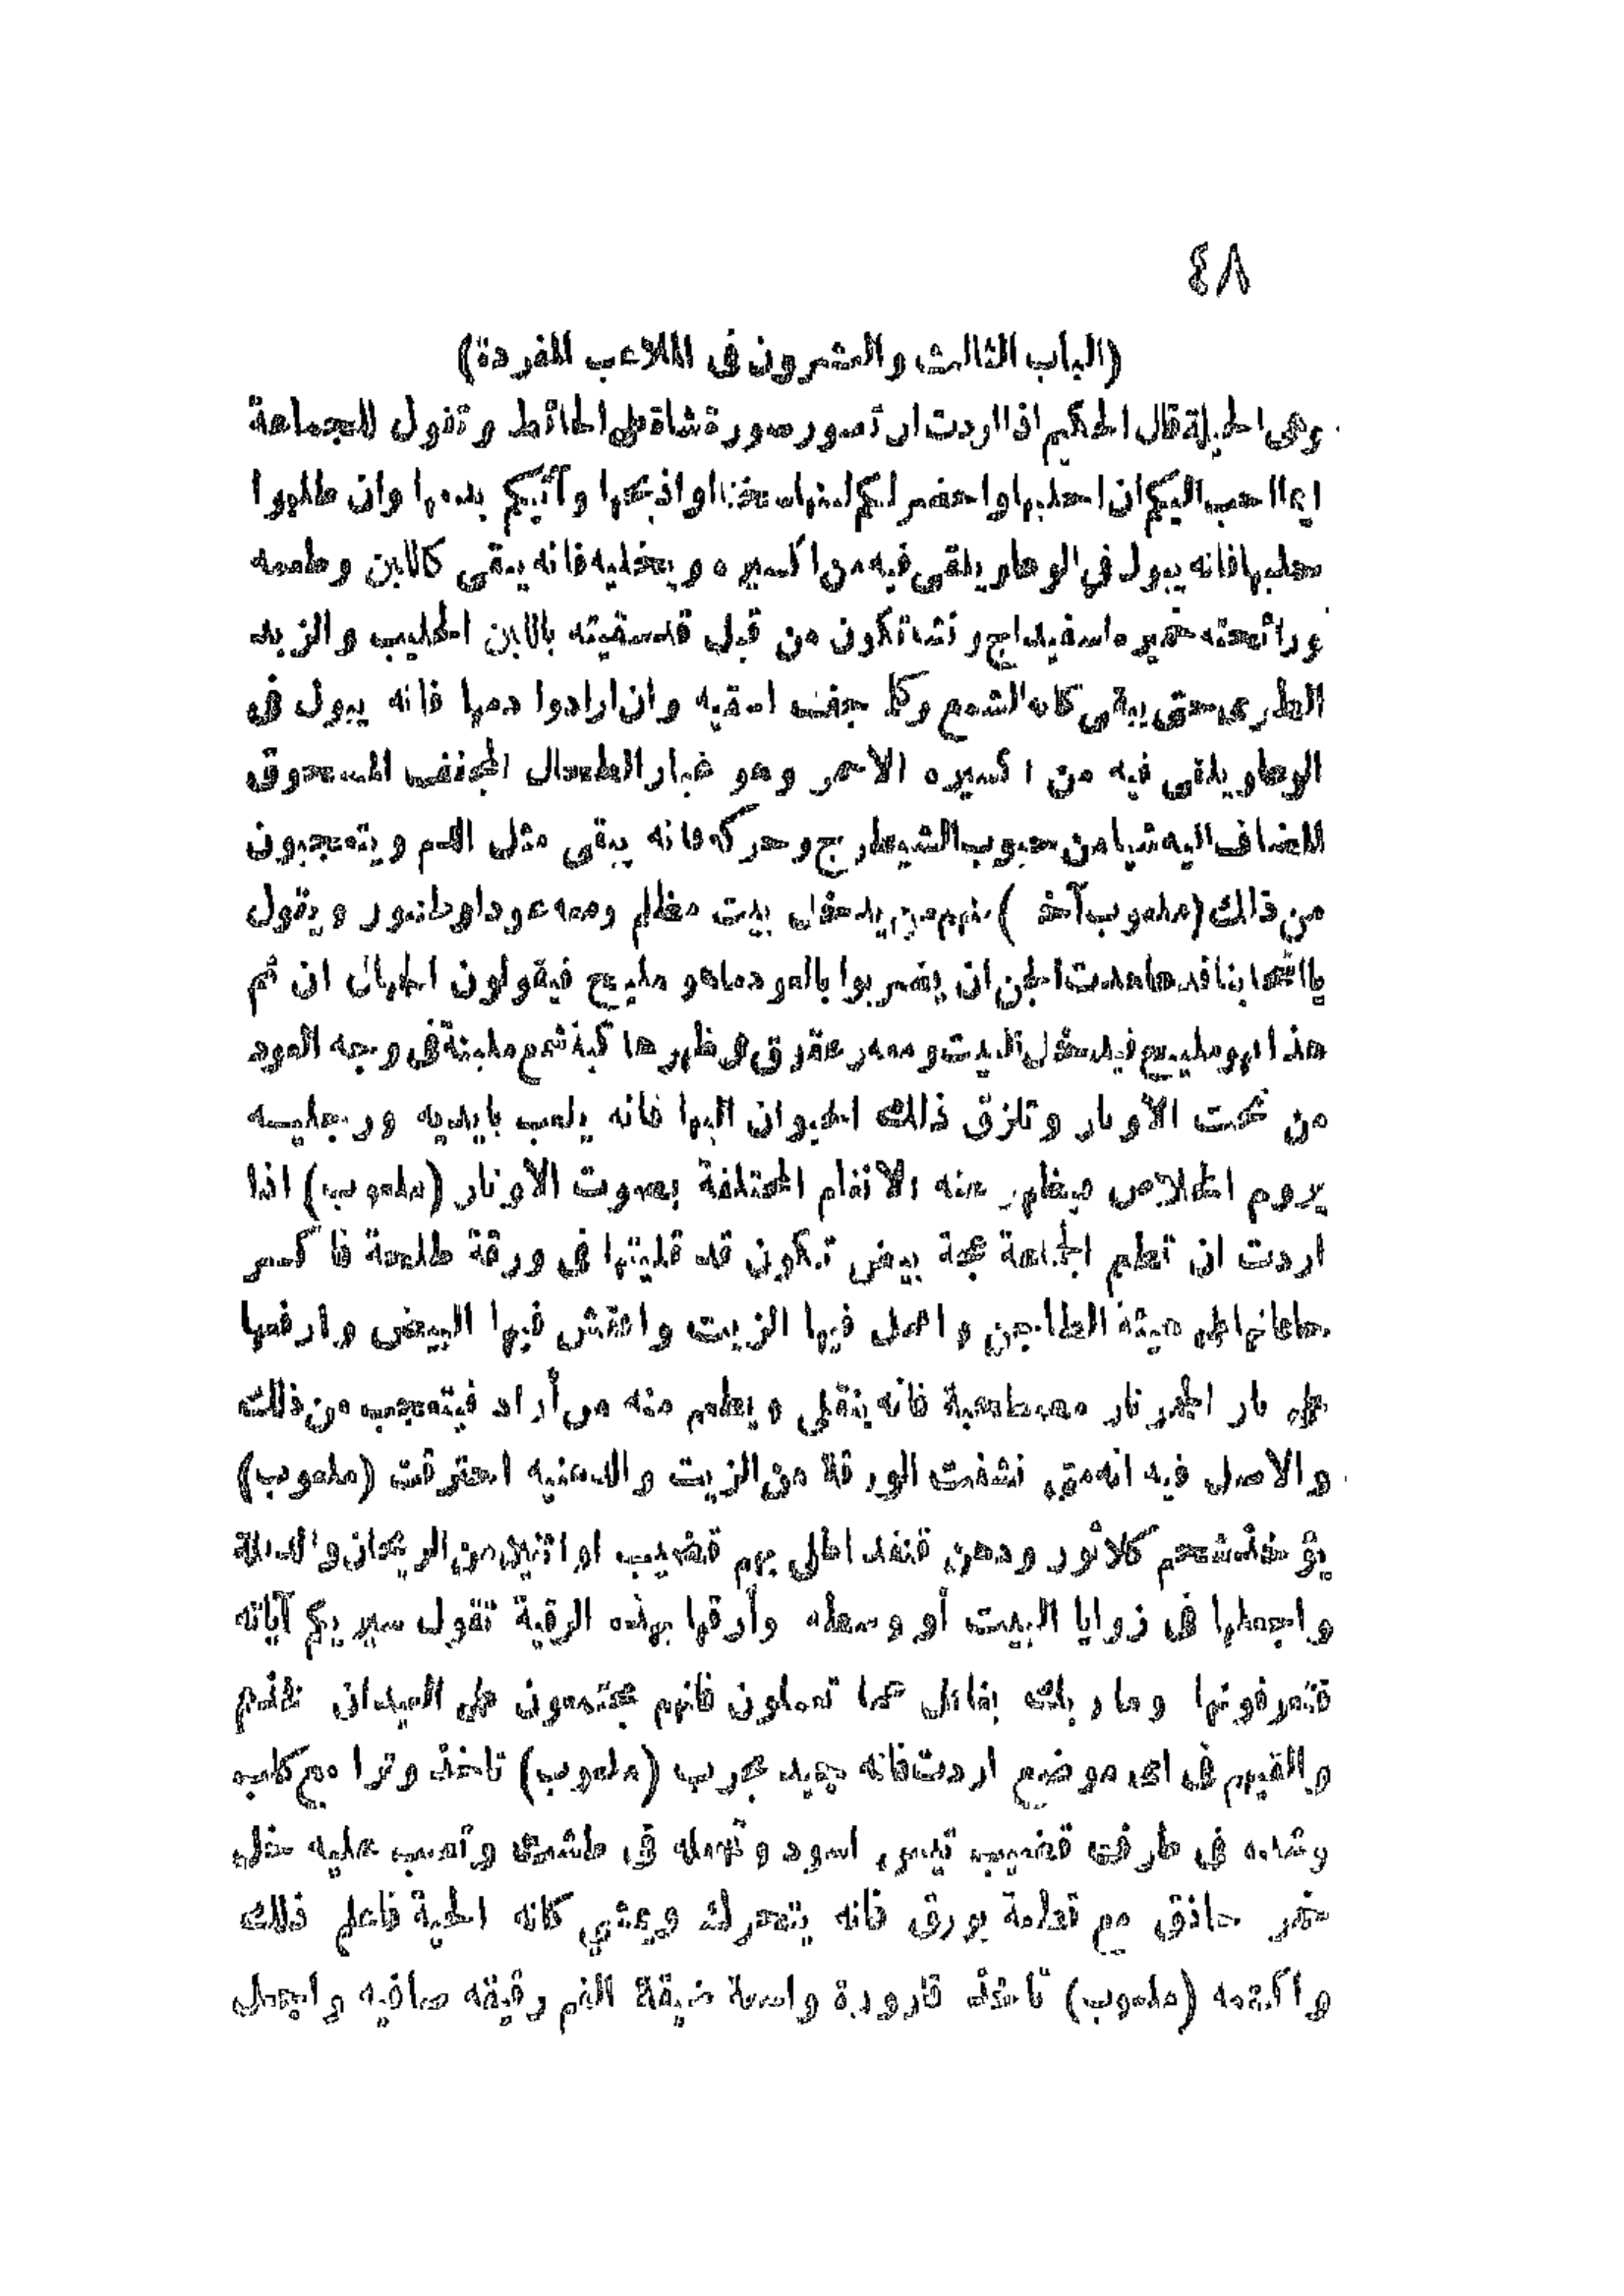 ٤٨
(الباب الثالث والعشرون فى الملاعب المفردة)
وهى الحيلة قال الحكيم اذا اردت ان تصور صورة شاة على الحائط وتقول للجماعة
ايما احب اليكم ان احلبها واحضر لكم لبنها سخنا او اذبحها وآتيكم بدمها وان طلبوا
حليبها فانه يبول فى الوعاء ويلقى فيه من اكسيره ويخليه فانه يبقى كاللبن وطعمه
ورائحته خميره اسفيداج ونشا تكون من قبل قد سقيته باللبن الحليب والزبد
الطرى حتى يبقى كانه الشمع وكلما جف اسقيه وان ارادوا دمها فانه يبول فى
الوعاء ويلقى فيه من اكسيره الاحمر وهو غبار الطحال المجفف المسحوق
المضاف اليه شيا من حبوب الشيطرج وحركه فانه يبقى مثل الدم ويتعجبون
من ذلك (ملعوب آخر) منهم من يدخل بيت مظلم ومعه عود او طنبور ويقول
يا اصحابنا قد عاهدت الجن ان يضربوا بالعود ما هو مليح فيقولون الجهال ان تم
هذا فهو مليح فيدخل البيت ومعه عقرق فى ظهرها كبة شمع ملينة فى وجه العود
من تحت الاوتار وتلزق ذلك الحيوان اليها فانه يلعب بايديه ورجليه
يروم الخلاص فيظهر عنه الانغام المختلفة بصوت الاوتار (ملعوب) اذا
اردت ان تطعم الجماعة عجة بيض تكون قد قليتها فى ورقة طلحة فاكسر
حافاتها على هيئة الطاجن واعمل فيها الزيت وافقش فيها البيض وارفعها
على نار الجمر نار مصطحبة فانه ينقلى ويطعم منه من أراد فيتعجب من ذلك
والاصل فيه انه متى نشفت الورقة من الزيت والدهنيه احترقت (ملعوب)
يؤخذ شحم كلاثور ودهن قنفد اطلى بهم قضيب او اثنين من الريحان والدفلة
واجعلها فى زوايا البيت أو وسطه وأرقها بهذه الرقية تقول سيريكم آياته
فتعرفونها وما ربك بغافل عما تعملون فانهم يجتمعون على العيدان خذهم
والقيهم فى اى موضع اردت فانه جيد مجرب (ملعوب) تاخذ وترا مع كلب
وشده فى طرف قضيب تيس اسود وتجعله فى طشت وتصب عليه خل
خمر حاذق مع قطعة بورق فانه يتحرك ويمشي كانه الحية فاعلم ذلك
واكتمه (ملعوب) تاخذ قارورة واسعة ضيقة الفم رقيقه صافيه واجعل